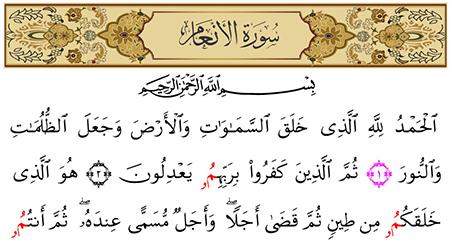 سُورَةُ الأَنْعَامِ
بِسْمِ اللَّهِ الرَّحْمَٰنِ الرَّحِيمِ
الْحَمْدُ لِلَّهِ الَّذِى خَلَقَ السَّمَٰوَٰتِ وَالْأَرْضَ وَجَعَلَ الظُّلُمَٰتِ
وَالنُّورَ ﴿١﴾ ثُمَّ الَّذِينَ كَفَرُوا بِرَبِّهِمُۥ يَعْدِلُونَ ﴿٢﴾ هُوَ الَّذِى
خَلَقَكُمُۥ مِن طِينٍ ثُمَّ قَضَىٰ أَجَلًا ۖ وَأَجَلٌ مُّسَمًّى عِندَهُۥ ۖ ثُمَّ أَنتُمُۥ